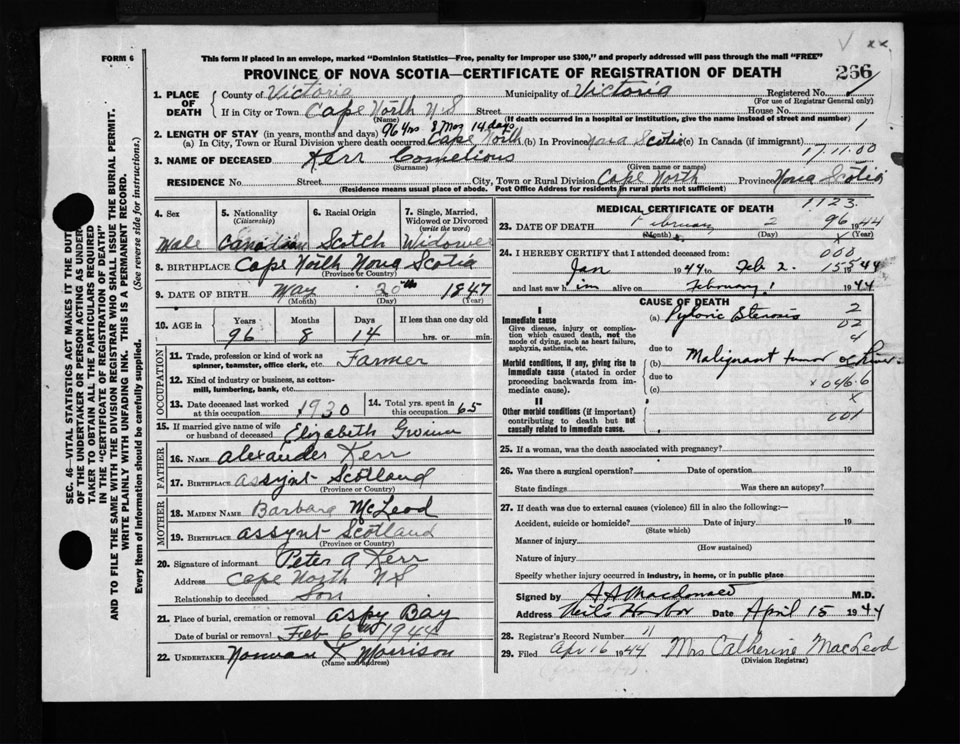 V xx
FORM 6
This form if placed in an envelope, marked "Dominion Statistics—Free, penalty for improper use $300," and properly addressed will pass through the mail "FREE"
PROVINCE OF NOVA SCOTIA—CERTIFICATE OF REGISTRATION OF DEATH
266
1. PLACE OF DEATH County of Victoria Municipality of Victoria Registered No.
(For use of Registrar General only)
If in City or Town Cape North N S Street House No.
(Name) (If death occurred in a hospital or institution, give the name instead of street and number)
2. LENGTH OF STAY (in years, months and days) 96 yrs 8 Mos 14 days 1
(a) In City, Town or Rural Division where death occurred Cape North (b) In Province Nova Scotia (c) In Canada (if immigrant)
17.11.00
3. NAME OF DECEASED Kerr Cornelious
(Surname) (Given name or names)
RESIDENCE No. Street City, Town or Rural Division Cape North Province Nova Scotia
(Residence means usual place of abode. Post Office Address for residents in rural parts not sufficient)
4. Sex 5. Nationality (Citizenship) 6. Racial Origin 7. Single, Married, Widowed or Divorced (write the word)
Male Canadian Scotch Widower
8. BIRTHPLACE Cape North Nova Scotia
(Province or Country)
9. DATE OF BIRTH May 20th 1847
(Month) (Day) (Year)
10. AGE in Years Months Days If less than one day old
96 8 14 hrs. or min.
OCCUPATION
11. Trade, profession or kind of work as spinner, teamster, office clerk, etc. Farmer
12. Kind of industry or business, as cotton-mill, lumbering, bank, etc.
13. Date deceased last worked at this occupation 1930 14. Total yrs. spent in this occupation 65
15. If married give name of wife or husband of deceased Elizabeth Gwinn
FATHER
16. NAME Alexander Kerr
17. BIRTHPLACE assynt Scotland
(Province or Country)
MOTHER
18. MAIDEN NAME Barbara McLeod
19. BIRTHPLACE assynt Scotland
(Province or Country)
20. Signature of informant Peter A Kerr
Address Cape North N S
Relationship to deceased Son
21. Place of burial, cremation or removal Aspy Bay
Date of burial or removal Feb 6th 1944
22. UNDERTAKER Norman X Morrison
(Name and address)
MEDICAL CERTIFICATE OF DEATH 1123
23. DATE OF DEATH February 2 1944
96
(Month) (Day)
24. I HEREBY CERTIFY that I attended deceased from: 000
Jan 1944 to Feb 2. 1944
155
and last saw him alive on February 1 1944
CAUSE OF DEATH
I
Immediate cause (a) Pyloric Stenosis 2
Give disease, injury or complication which caused death, not the mode of dying, such as heart failure, asphyxia, asthenia, etc. 02
due to 4
Morbid conditions, if any, giving rise to immediate cause (stated in order proceeding backwards from immediate cause). (b) Malignant tumor of Liver
due to
(c) x 046.6
x
II
Other morbid conditions (if important) contributing to death but not causally related to immediate cause. 001
25. If a woman, was the death associated with pregnancy?
26. Was there a surgical operation? Date of operation 19
State findings Was there an autopsy?
27. If death was due to external causes (violence) fill in also the following:—
Accident, suicide or homicide? Date of injury 19
(State which)
Manner of injury
(How sustained)
Nature of injury
Specify whether injury occurred in industry, in home, or in public place
Signed by A A Macdonald M.D.
Address Neils Harbor Date April 15 1944
28. Registrar's Record Number 11
29. Filed Apr 16 1944 Mrs Catherine MacLeod
(Division Registrar)
SEC. 46—VITAL STATISTICS ACT MAKES IT THE DUTY
OF THE UNDERTAKER OR PERSON ACTING AS UNDER-
TAKER TO OBTAIN ALL THE PARTICULARS REQUIRED
IN THE "CERTIFICATE OF REGISTRATION OF DEATH"
AND TO FILE THE SAME WITH THE DIVISION REGISTRAR WHO SHALL ISSUE THE BURIAL PERMIT.
WRITE PLAINLY WITH UNFADING INK. THIS IS A PERMANENT RECORD.
Every item of information should be carefully supplied. (See reverse side for instructions.)